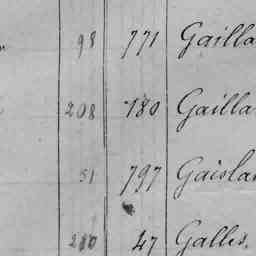 98 771 Gailla
208 780 Gailla
51 797 Gaisla
280 47 Galles.